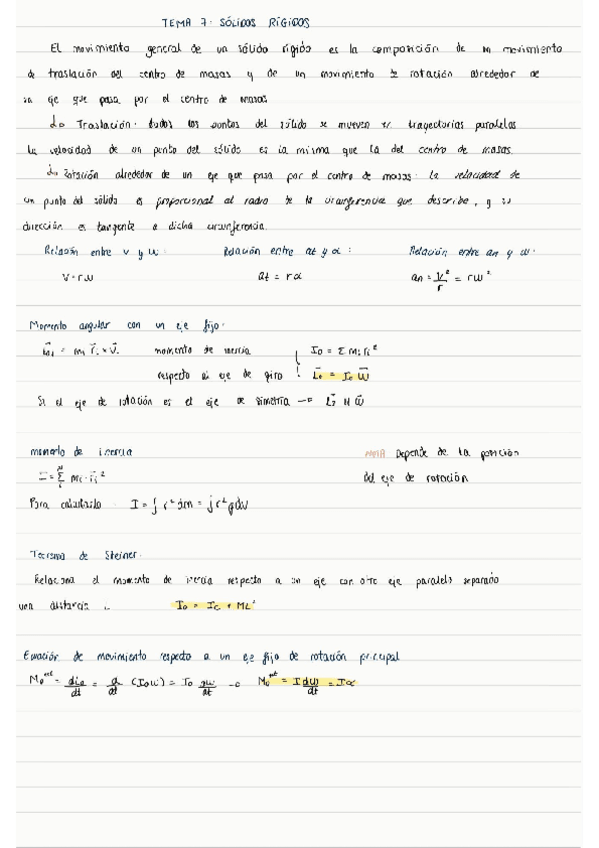 TEMA 7: SÓLIDOS RÍGIDOS
El movimiento general de un sólido rígido es la composición de un movimiento
de traslación del centro de masas y de un movimiento de rotación alrededor de
un eje que pasa por el centro de masas
↳ Traslación: todos los puntos del sólido se mueven en trayectorias paralelas
la velocidad de un punto del sólido es la misma que la del centro de masas.
↳ Rotación alrededor de un eje que pasa por el centro de masas: la velocidad de
un punto del sólido es proporcional al radio de la circunferencia que describe, y su
dirección es tangente a dicha circunferencia.
Relación entre v y ω: Relación entre at y α: Relación entre an y ω:
v = rω at = rα an = v²/r = rω²
Momento angular con un eje fijo:
= mᵢ r⃗ᵢ × v⃗ᵢ momento de inercia I₀ = Σ mᵢ rᵢ²
respecto al eje de giro L⃗₀ = I₀ ω⃗
Si el eje de rotación es el eje de simetría → ω⃗
momento de inercia NOTA Depende de la posición
I = Σ mᵢ · rᵢ² del eje de rotación
Para calcularlo I = ∫ r² dm = ∫ r² ρ dV
Teorema de Steiner.
Relaciona el momento de inercia respecto a un eje con otro eje paralelo separado
una distancia L. I₀ = Ic + ML²
Ecuación de movimiento respecto a un eje fijo de rotación principal
M₀ᵉˣᵗ = dL₀/dt = d/dt (I₀ω) = I₀ dω/dt → M₀ᵉˣᵗ = I dω/dt = Iα